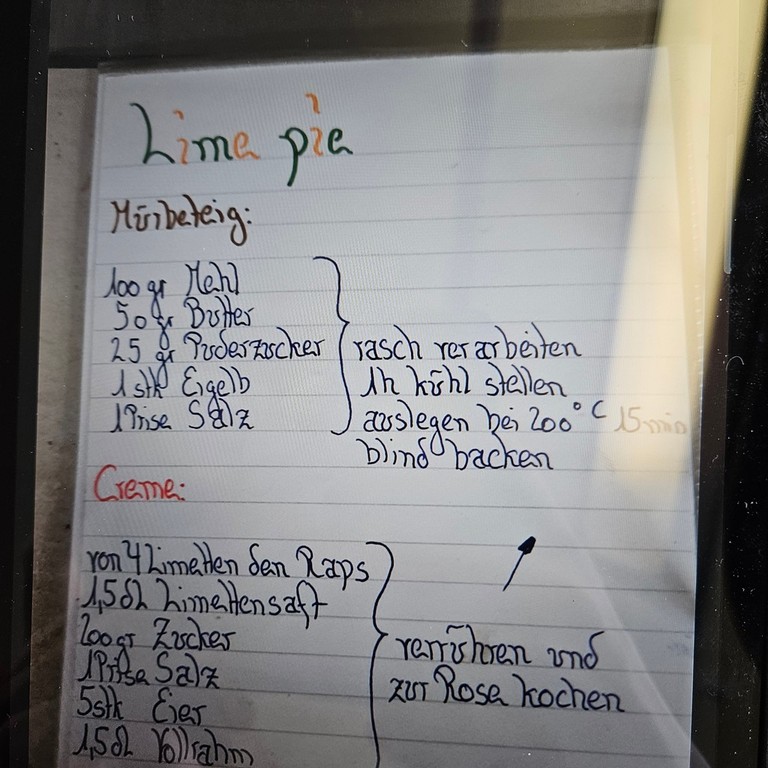 Lime pie
Mürbeteig:
100 gr Mehl
50 gr Butter
25 gr Puderzucker
1 stk Eigelb
1 Prise Salz
rasch verarbeiten
1h kühl stellen
auslegen bei 200°C 15min
blind backen
Creme:
von 4 Limetten den Raps
1,5dl Limettensaft
200gr Zucker
1 Prise Salz
5stk Eier
1,5dl Vollrahm
verrühren und
zur Rose kochen